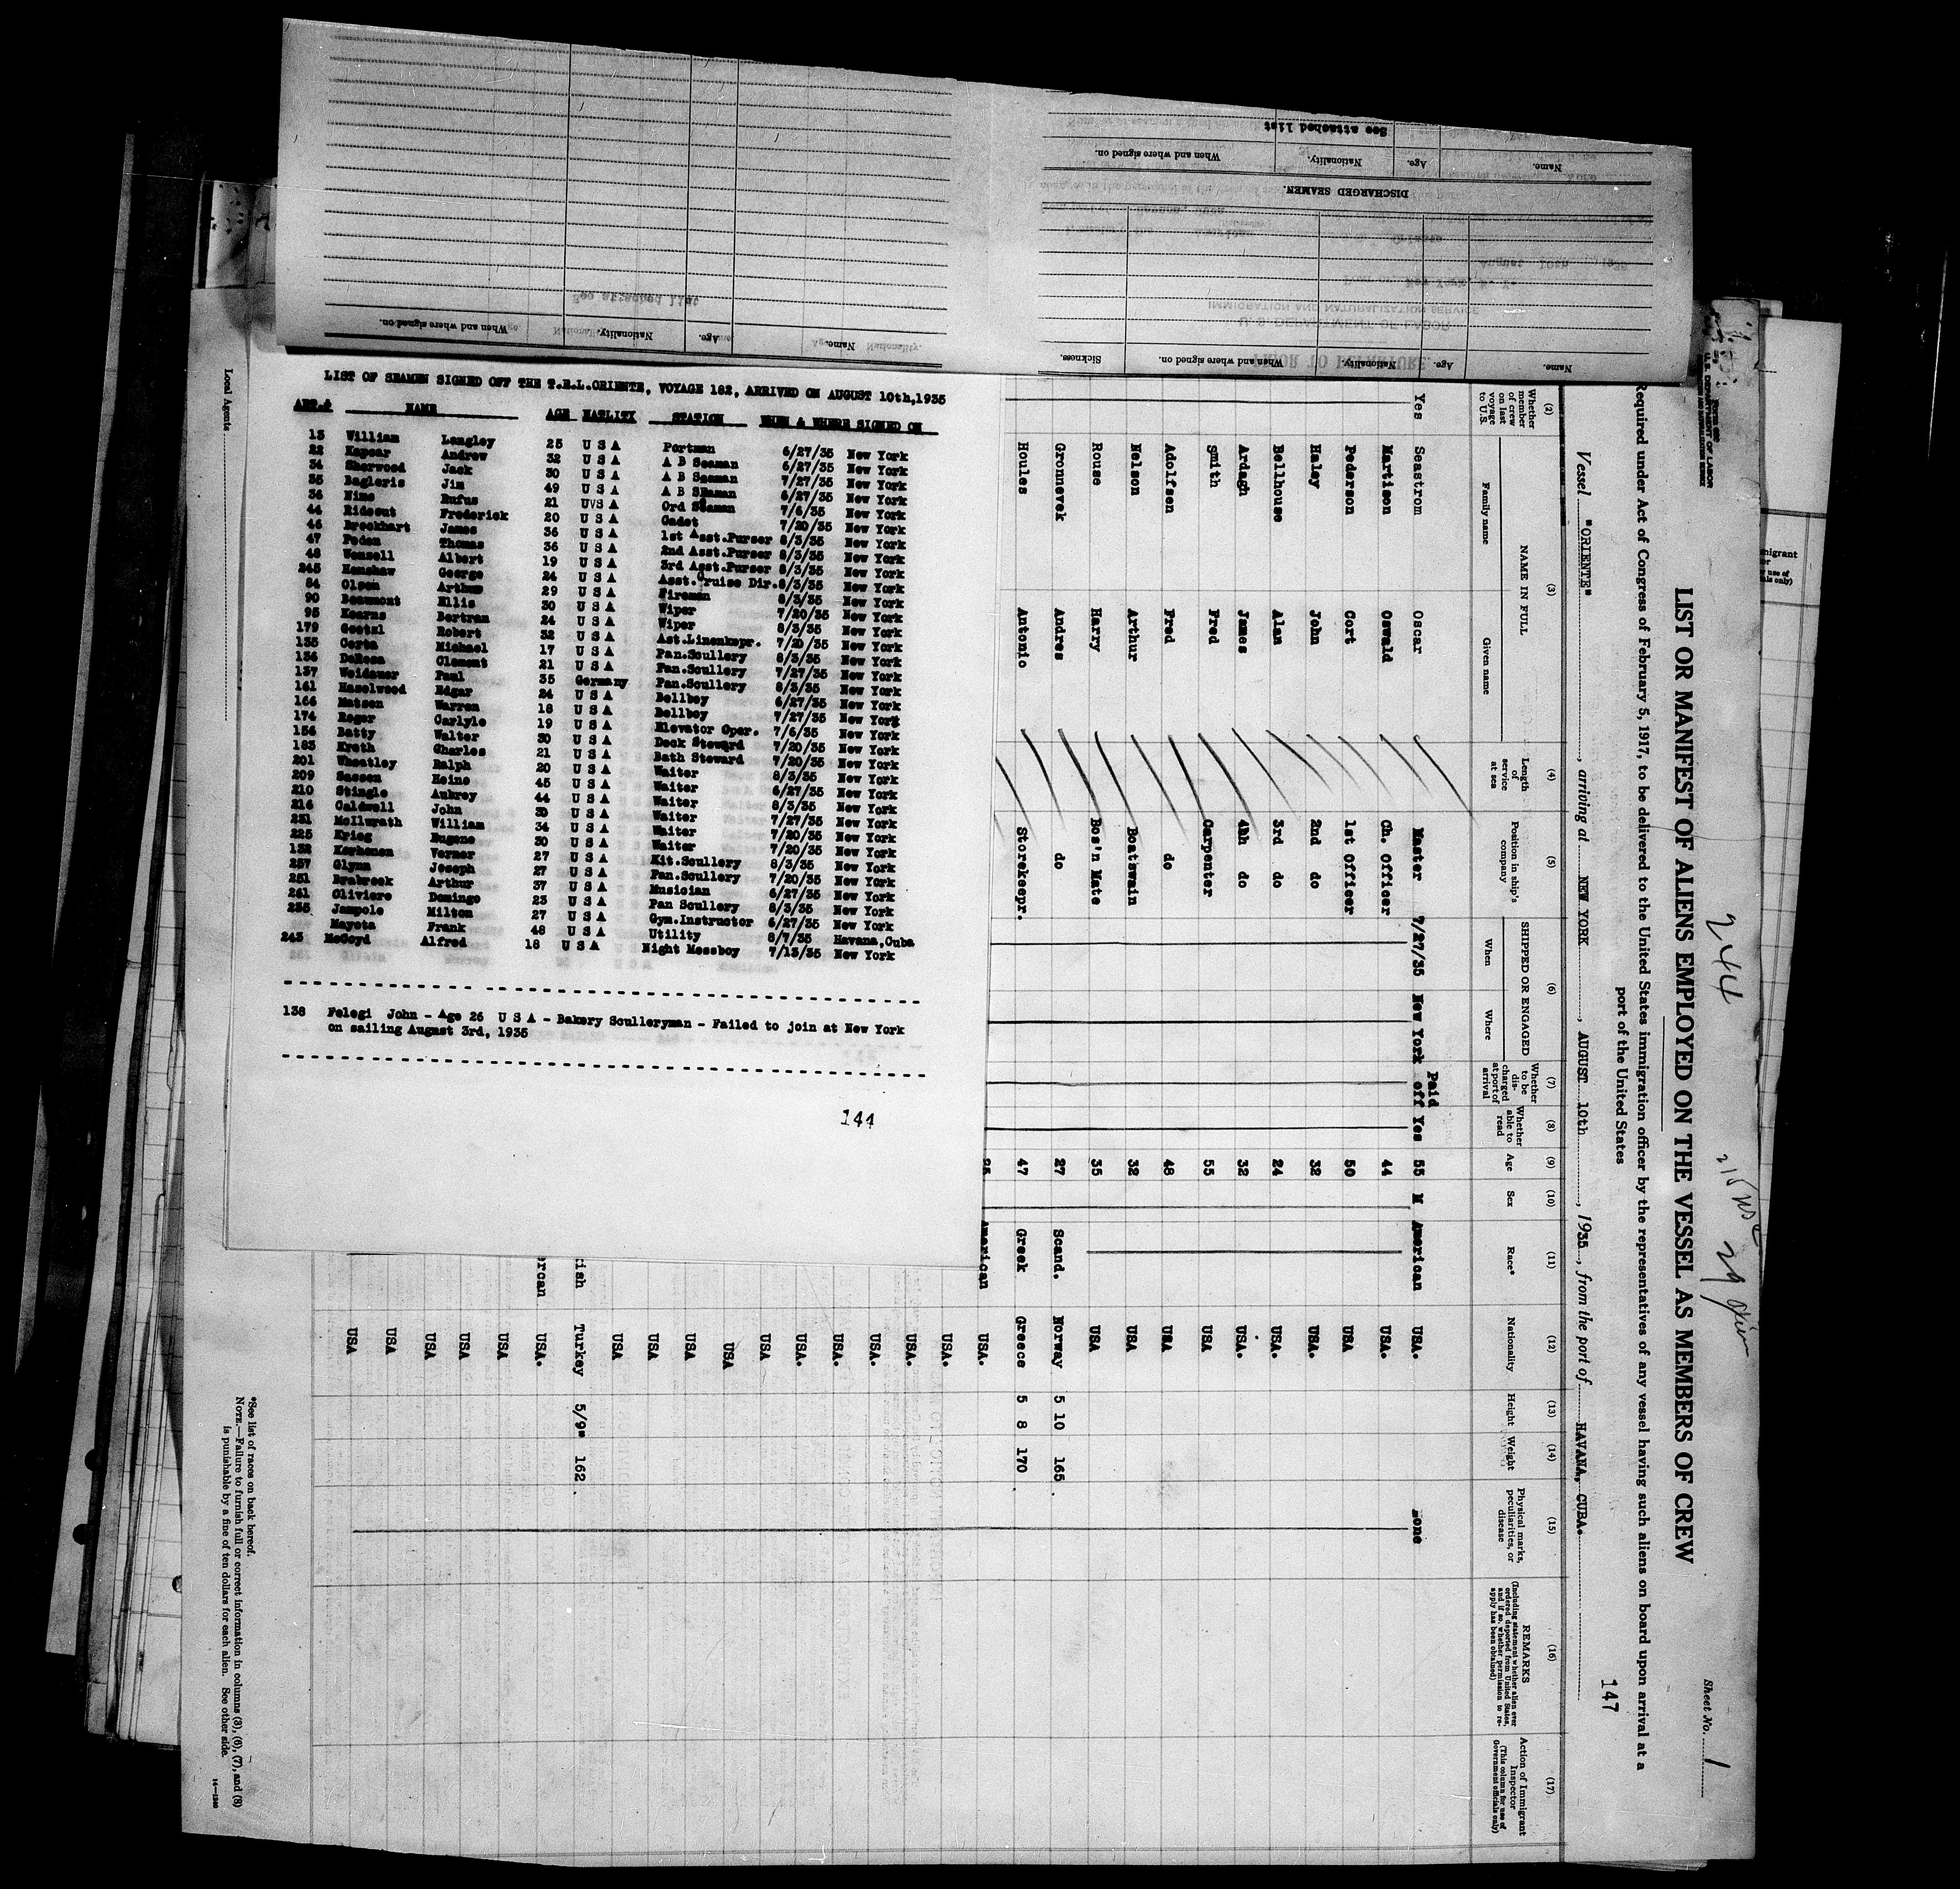 See attached list
Name. Age. Nationality. When and where signed on.
DISCHARGED SEAMEN.
Name. Age. Nationality. When and where signed on. Sickness.
See attached list
Name. Age. Nationality. When and where signed on.
LIST OF SEAMEN SIGNED OFF THE T.E.L.ORIENTE, VOYAGE 182, ARRIVED ON AUGUST 10th,1935
ART.# NAME AGE NATLITY STATION WHEN & WHERE SIGNED ON
13 William Longley 25 U S A Portman 6/27/35 New York
22 Kapear Andrew 32 U S A A B Seaman 6/27/35 New York
34 Sherwood Jack 30 U S A A B Seaman 7/27/35 New York
35 Bagleris Jim 49 U S A A B Seaman 6/27/35 New York
36 Nims Rufus 21 U S A Ord Seaman 7/6/35 New York
44 Rideout Frederick 20 U S A Cadet 7/20/35 New York
46 Brockhart James 36 U S A 1st Asst.Purser 8/3/35 New York
47 Peden Thomas 36 U S A 2nd Asst.Purser 8/3/35 New York
48 Wensell Albert 19 U S A 3rd Asst.Purser 8/3/35 New York
245 Henshaw George 24 U S A Asst.Cruise Dir. 8/3/35 New York
84 Olsen Arthur 29 U S A Fireman 8/3/35 New York
90 Beaumont Ellis 30 U S A Wiper 7/20/35 New York
95 Kearns Bertram 24 U S A Wiper 8/3/35 New York
179 Goetzl Robert 32 U S A Ast.Linenkepr. 7/20/35 New York
135 Certa Michael 17 U S A Pan.Scullery 8/3/35 New York
136 DeRosa Clement 21 U S A Pan.Scullery 7/27/35 New York
137 Weidauer Paul 35 Germany Pan.Scullery 8/3/35 New York
161 Haselwood Edgar 24 U S A Bellboy 6/27/35 New York
166 Matson Warren 18 U S A Bellboy 7/27/35 New York
174 Roger Carlyle 19 U S A Elevator Oper. 7/6/35 New York
156 Batty Walter 30 U S A Deck Steward 7/20/35 New York
183 Kroth Charles 21 U S A Bath Steward 7/20/35 New York
201 Wheatley Ralph 20 U S A Waiter 8/3/35 New York
209 Sassen Heino 45 U S A Waiter 6/27/35 New York
210 Stingle Aubrey 44 U S A Waiter 8/3/35 New York
216 Caldwell John 30 U S A Waiter 7/27/35 New York
231 McIlwrath William 34 U S A Waiter 7/20/35 New York
225 Krieg Eugene 30 U S A Waiter 7/20/35 New York
132 Korhonen Verner 27 U S A Kit.Scullery 8/3/35 New York
257 Glynn Joseph 27 U S A Pan.Scullery 7/20/35 New York
251 Brabrook Arthur 37 U S A Musician 6/27/35 New York
261 Oliviere Domingo 23 U S A Pan Scullery 8/3/35 New York
235 Jampole Milton 27 U S A Gym.Instructor 6/27/35 New York
Mayota Frank 48 U S A Utility 8/7/35 Havana,Cuba
243 McCoyd Alfred 18 U S A Night Messboy 7/13/35 New York
138 Felegi John - Age 26 U S A - Bakery Sculleryman - Failed to join at New York
on sailing August 3rd, 1935
144
Local Agents
Sheet No. 1
244
LIST OR MANIFEST OF ALIENS EMPLOYED ON THE VESSEL AS MEMBERS OF CREW
147
Required under Act of Congress of February 5, 1917, to be delivered to the United States immigration officer by the representatives of any vessel having such aliens on board upon arrival at a
port of the United States
Vessel "ORIENTE", arriving at NEW YORK, AUGUST 10th, 1935, from the port of HAVANA, CUBA.
(2) (3) (4) (5) (6) (7) (8) (9) (10) (11) (12) (13) (14) (15) (16) (17)
Whether member of crew on last voyage to U.S.
NAME IN FULL
Family name Given name
Length of service at sea
Position in ship's company
SHIPPED OR ENGAGED
When Where
Whether to be discharged at port of arrival
Whether able to read
Age Sex Race* Nationality Height Weight
Physical marks, peculiarities, or disease
REMARKS
(Including statement whether alien ever ordered deported from United States, and if so, whether permission to reapply has been obtained)
Action of Immigrant Inspector
(This column for use of Government officials only)
Yes Seastrom Oscar Master 7/27/35 New York Paid off Yes 55 M American USA. none
Martison Oswald Ch. Officer 44 USA.
Pederson Cort 1st Officer 50 USA
Haley John 2nd do 32 USA.
Bellhouse Alan 3rd do 24 USA.
Ardagh James 4th do 32 USA.
Smith Fred Carpenter 55 USA
Adolfsen Fred do 48 USA
Nelson Arthur Boatswain 32 USA
Rouse Harry Bos'n Mate 35 USA
Gronnevek Andres do 27 Scand. Norway 5 10 165
Houles Antonio Storekeepr. 47 Greek Greece 5 8 170
American USA.
USA.
USA.
USA.
USA.
USA
USA
USA
USA
USA
Turkey 5/9" 162
USA.
USA
USA
USA
USA
USA
*See list of races on back hereof.
NOTE.—Failure to furnish full or correct information in columns (3), (6), (7), and (8)
is punishable by a fine of ten dollars for each alien. See other side.
14—1240